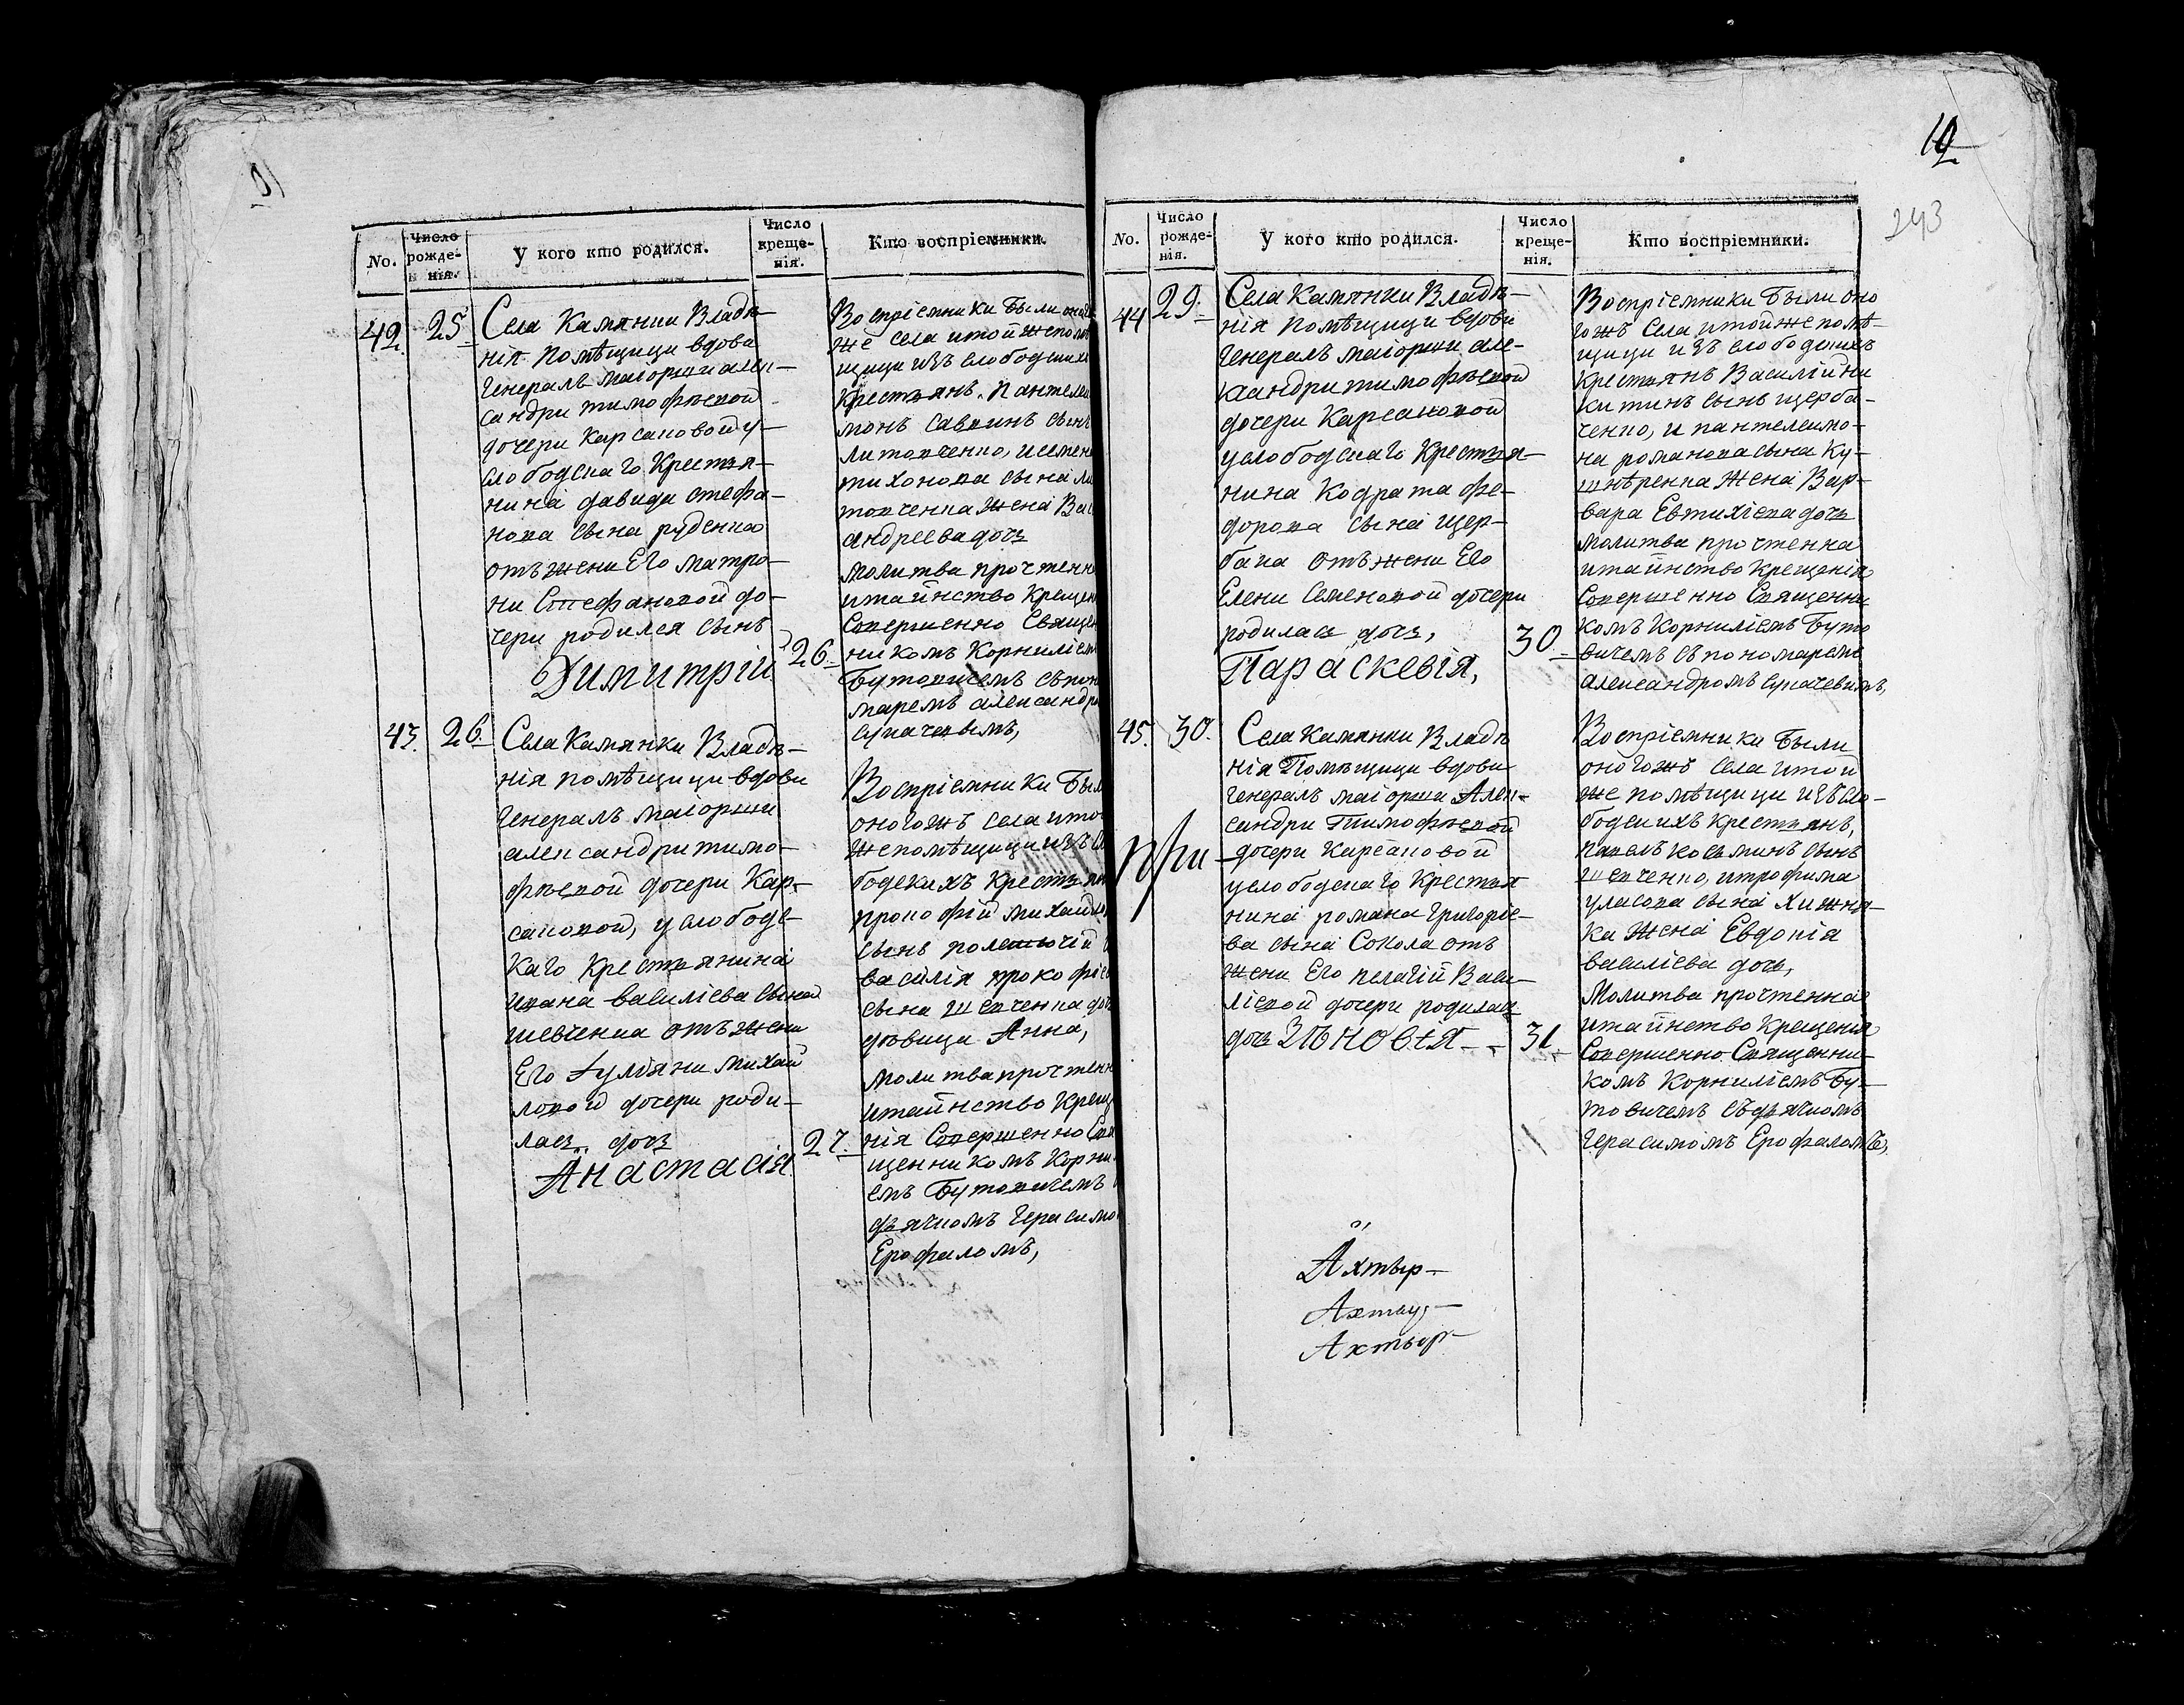 10
No.
Число рожде-нія.
У кого кто родился.
Число креще-нія.
Кто воспріемники.
42.
25
Села Камянки Владѣ-
нія помѣщици вдови
Генералъ маіорши алек-
сандри тимофѣевой
дочери Карсаковой у-
слободскаго Крестья-
нина давида стефа-
нова сына руденка
отъ жени Его матро-
ни Стефановой до-
чери родился сынъ
Димитрій
26.
Воспріемники были оного
же села и той же помѣ
щици изъ слободскихъ
крестьянъ. Пантелей
монъ саввинъ сынъ
литовченко, и семена
тихонова сына ли
товченка жена
андреева дочь
молитва прочтенна
и таинство Крещен
Совершенно Священ
никомъ Корниліемъ
Бутовичемъ съ поно
маремъ александро
сукачевымъ,
43.
26
Села Камянки Владѣ-
нія помѣщици вдови
Генералъ маіорши
александри тимо-
фѣевой дочери Кар-
саковой, у слободс-
каго крестьянина
ивана василіева сына
шевченка отъ жени
Его Іуліяни михай
ловой дочери роди-
лась дочь
Анастасія
27.
Воспріемники Были
оногожъ села и той
же помѣщици изъ сло
бодскихъ крестьян
прокофій михайлов
сынъ
василія прокофіев
сына шевченка дочь
дѣвица Анна,
молитва прочтенн
и таинство Креще
нія Совершенно Свя
щенникомъ Корнилі
емъ Бутовичемъ
дьячкомъ Герасимо
Ерофаломъ,
10
243
No.
Число рожде-нія.
У кого кто родился.
Число креще-нія.
Кто воспріемники.
44
29.
Села Камянки Владѣ-
нія помѣщици вдови
Генералъ маіорши але-
ксандри тимофѣевой
дочери Карсаковой
у слободскаго Крестья-
нина Кодрата фе-
дорова сына щер-
бака отъ жени Его
Елени Семеновой дочери
родилась дочь,
Параскевія,
30.
Воспріемники были оно
гожъ села и той же помѣ-
щици изъ слободскихъ
крестьянъ Василій ни
китинъ сынъ щерба-
ченко, и пантелеимо-
на романова сына Ку-
шнѣренка жена Вар-
вара Евтихіева дочь
молитва прочтенна
и таинство Крещенія
Совершенно Священни
комъ Корниліемъ Буто
вичемъ съ пономаремъ
александромъ сукачевимъ,
45.
30.
Села Камянки Владѣ
нія Помѣщици вдови
Генералъ маіорши Алек-
сандри Тимофѣевой
при - дочери Карсаковой
у слободскаго Крестья
нина романа григоріе-
ва сына Сокола отъ
жени Его пелагій Васи
ліевой дочери родилась
дочь Зѣновія - -
31
Воспріемники были
оногожъ села и той
же помѣщици изъ сло-
бодскихъ крестьянъ,
павелъ косминъ сынъ
шевченко, и трофима
уласова сына Хижня-
ка жена Евдокія
василіева дочь,
Молитва прочтенна
и таинство Крещенія
Совершенно Священни-
комъ Корниліемъ Бу-
товичемъ съ дьячкомъ
Герасимомъ Ерофаломъ,
Ахтыр-
Ахтыр-